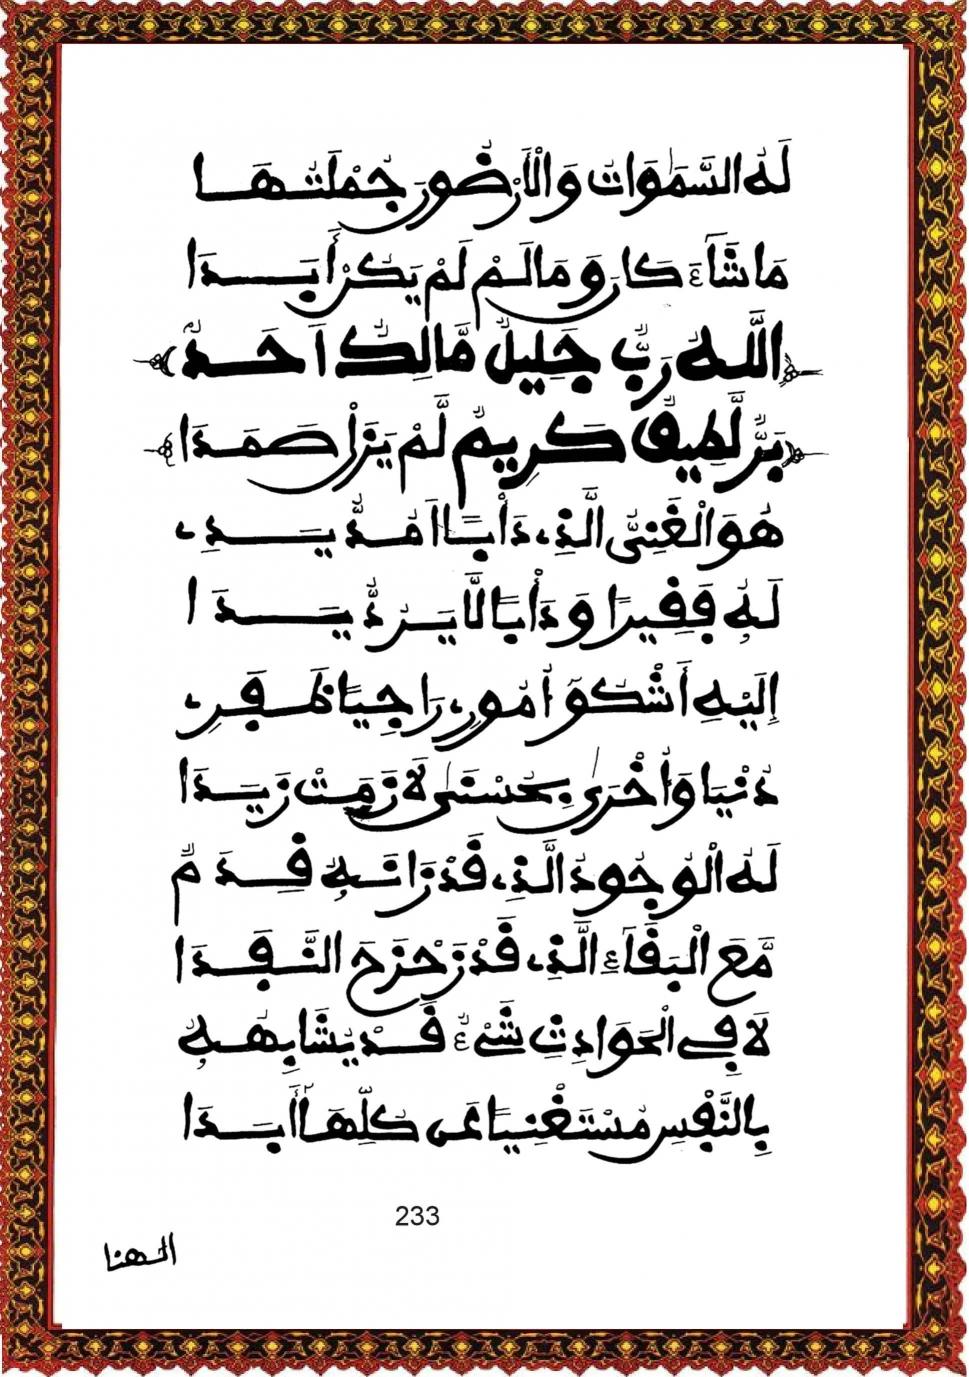 لَهُ السَّمَٰوَاتُ وَالْأَرْضُونَ جُمْلَتُهَا
مَا شَآءَ كَانَ وَمَا لَمْ لَمْ يَكُنْ أَبَدَا
اللَّهُ رَبٌّ جَلِيلٌ مَّالِكٌ أَحَدٌ
بَرٌّ لَّطِيفٌ كَرِيمٌ لَّمْ يَزَلْ صَمَدَا
هُوَ الْغَنِىُّ الَّذِى دَأْبًا أَمُدُّ يَدِى
لَهُ فَقِيرًا وَدَأْبًا لَّا يَرُدُّ يَدَا
إِلَيْهِ أَشْكُو أُمُورِى رَاجِيًا ظَفَرِى
دُنْيَا وَأُخْرَىٰ بِحُسْنَىٰ لَازَمَتْ زَيَدَا
لَهُ الْوُجُودُ الَّذِى قَدْ زَانَهُ قِدَمٌ
مَّعَ الْبَقَآءِ الَّذِى قَدْ زَحْزَحَ النَّفَدَا
لَا فِى الْحَوَادِثِ شَىْءٌ قَدْ يُشَابِهُهُ
بِالنَّفْسِ مُسْتَغْنِيًا عَن كُلِّهَا أَبَدَا
233